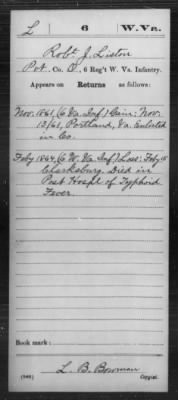 L 6 W. Va.
Robt J. Liston
Pvt. Co. O, 6 Reg't W. Va. Infantry.
Appears on Returns as follows:
Nov. 1861, (6 Va. Inf.) Gain: Nov.
12/61, Portland, Va. Enlisted
in Co.
Feby 1864, (6 W. Va. Inf.) Loss: Feby 15
Clarksburg. Died in
Post Hosp'l of Typhoid
Fever.
Book mark:
(546) L. B. Bowman
Copyist.